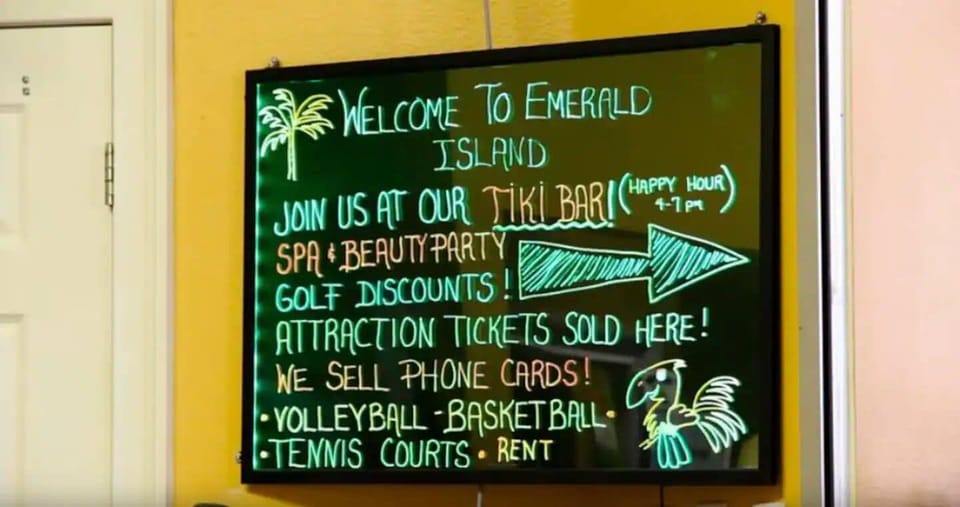 WELCOME TO EMERALD
ISLAND
JOIN US AT OUR TIKI BAR! (HAPPY HOUR
4-7pm)
SPA & BEAUTY PARTY
GOLF DISCOUNTS!
ATTRACTION TICKETS SOLD HERE!
WE SELL PHONE CARDS!
• VOLLEYBALL - BASKETBALL •
• TENNIS COURTS • RENT